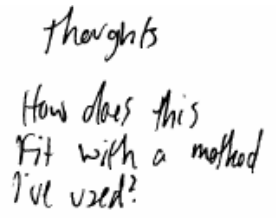 thoughts
How does this
Fit with a method
I've used?